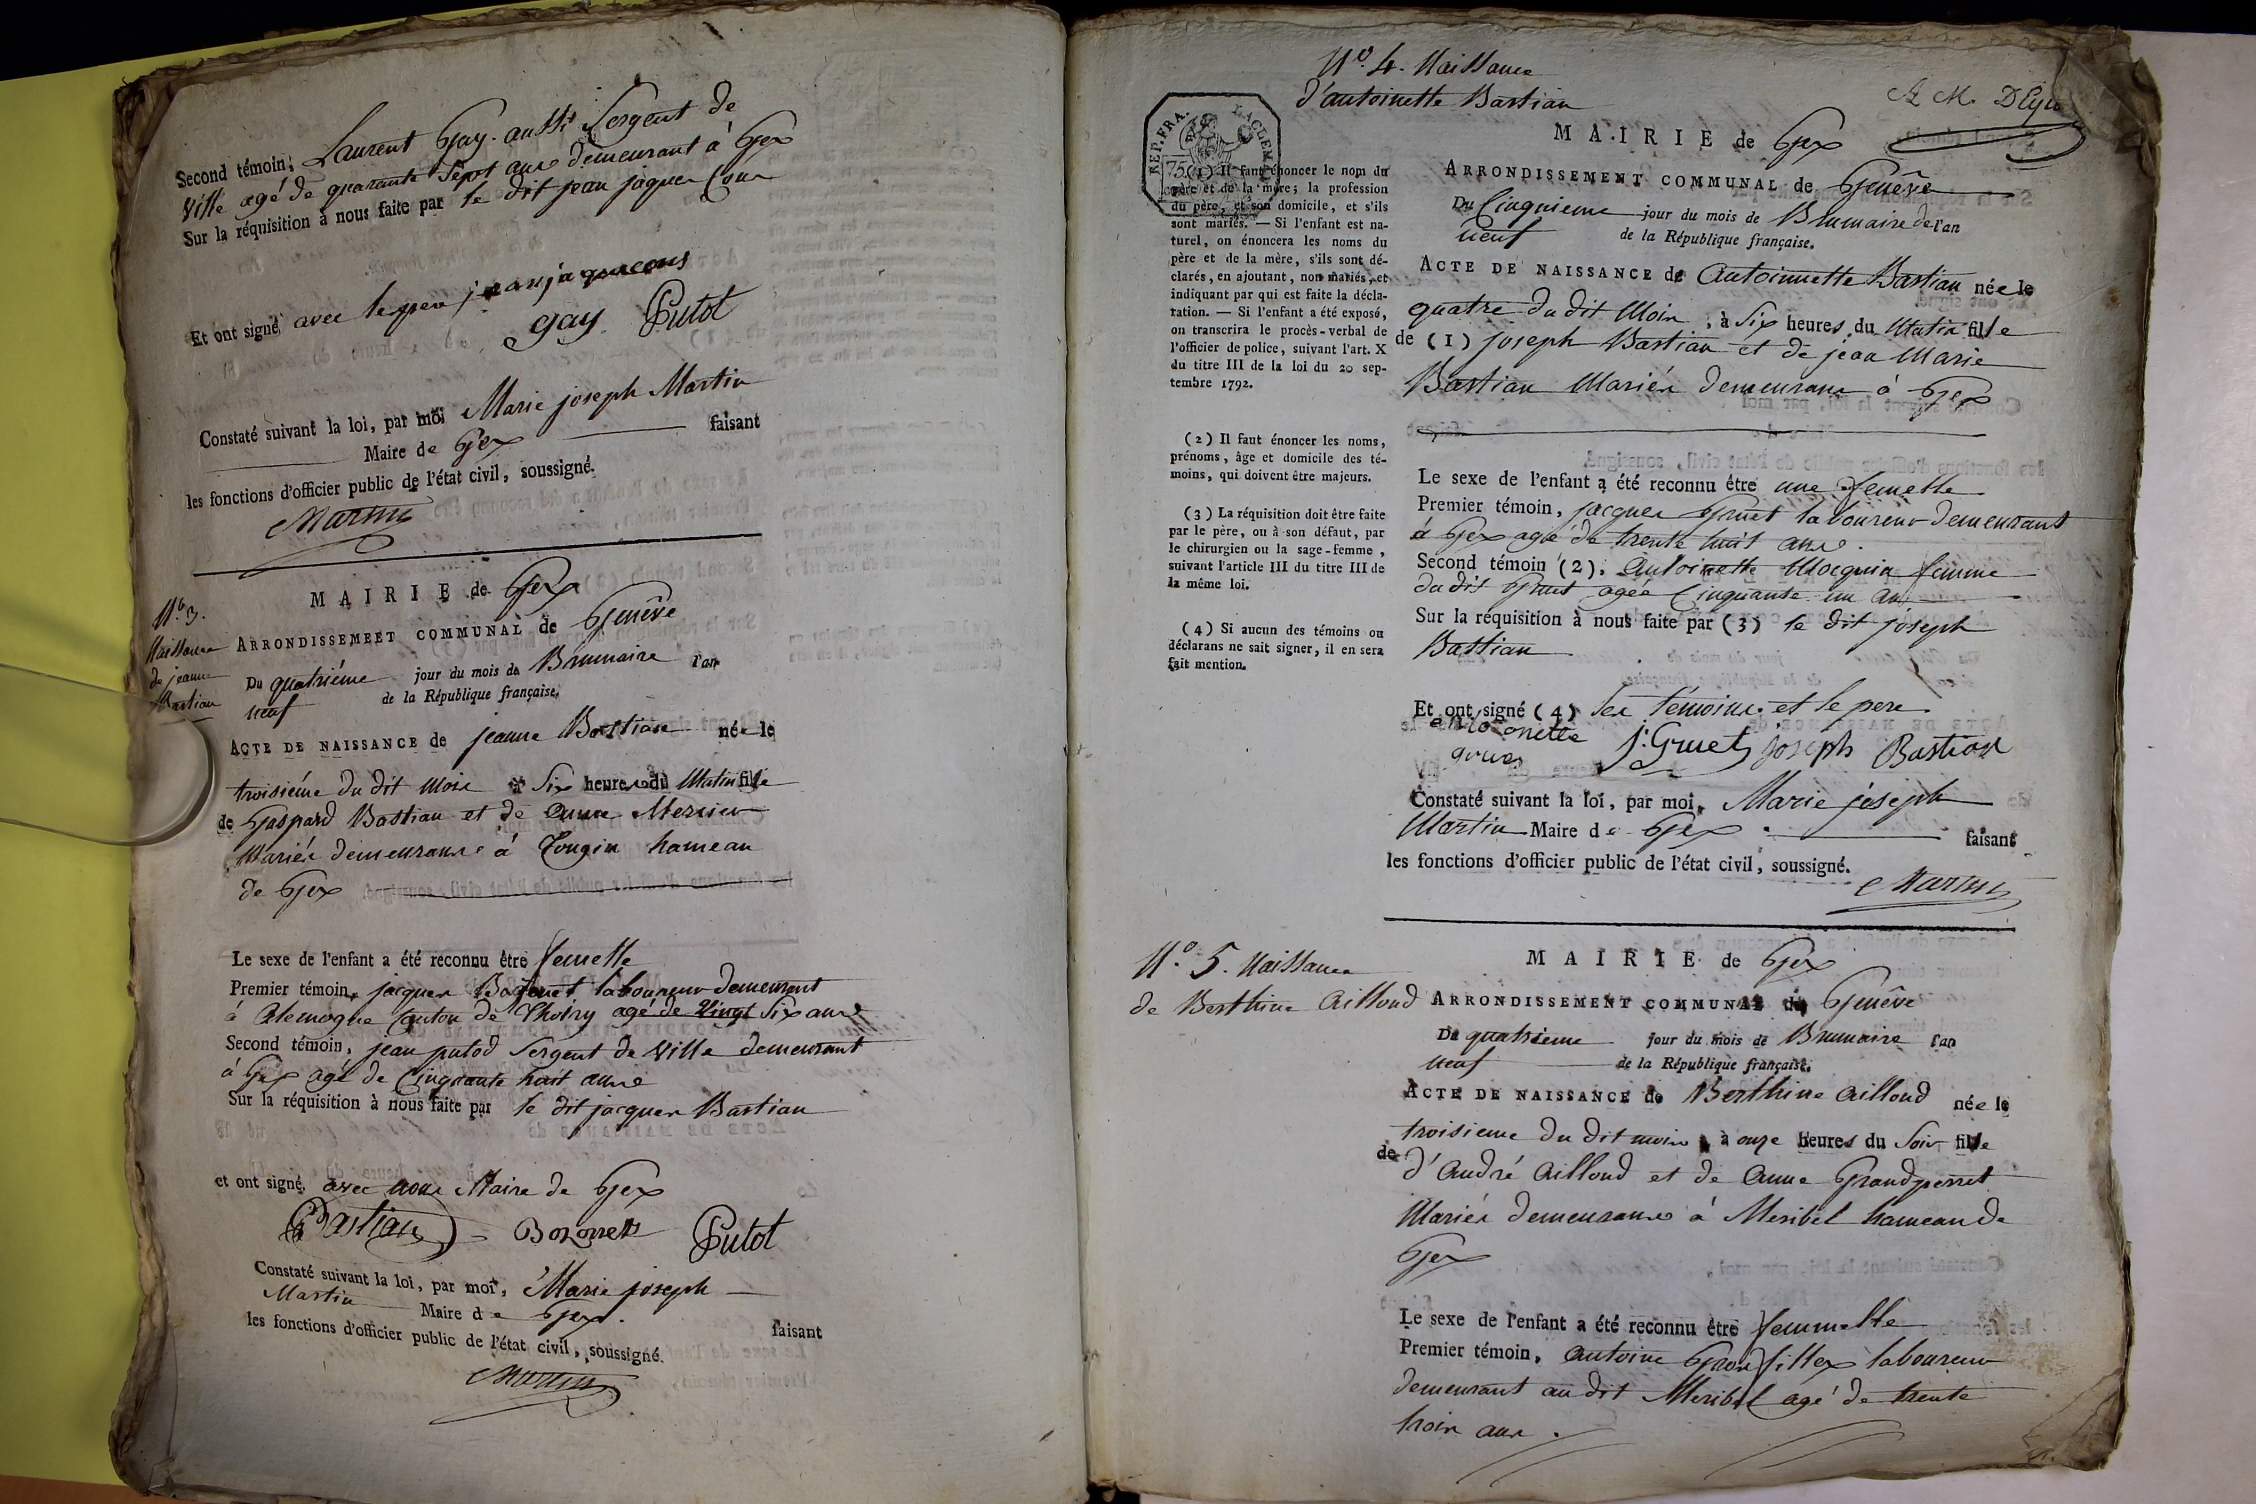 Second témoin, Laurent Gay aussi Sergent de
Ville agé de quarante Sept ans demeurant à Gex
Sur la réquisition à nous faite par le dit jean jaques Cour
Et ont signé avec le pere jean jaque cous
gay Putot
Constaté suivant la loi, par moi Marie joseph Martin
Maire de Gex faisant
les fonctions d'officier public de l'état civil, soussigné.
Martin
N.o 3.
Naissance
de jeanne
Bastian
MAIRIE de Gex
ARRONDISSEMEET COMMUNAL de Genêve
Du quatriéme jour du mois de Brumaire l'an
neuf de la République française.
ACTE DE NAISSANCE de jeanne Bastian née le
troisiéme du dit Mois à Six heures du Matin fille
de Gaspard Bastian et de Anne Mercier
Mariés demeurans à Tougin hameau
de Gex
Le sexe de l'enfant a été reconnu être femelle
Premier témoin, jacques laboureur demeurant
à alemogne Canton de Thoiry agé de Vingt Six ans
Second témoin, jean putod Sergent de Ville demeurant
à Gex agé de Cinquante huit ans
Sur la réquisition à nous faite par le dit jacques Bastian
et ont signé avec nous Maire de Gex
Bastian Bozonett Putot
Constaté suivant la loi, par moi, Marie joseph
Martin Maire de Gex. faisant
les fonctions d'officier public de l'état civil, soussigné.
Martin
N.o 4. Naissance
d'antoinette Bastian
REP. FRA.
75 C.
(1) Il faut énoncer le nom du
père et de la mère; la profession
du père, et son domicile, et s'ils
sont mariés. — Si l'enfant est na-
turel, on énoncera les noms du
père et de la mère, s'ils sont dé-
clarés, en ajoutant, non mariés, et
indiquant par qui est faite la décla-
ration. — Si l'enfant a été exposé,
on transcrira le procès-verbal de
l'officier de police, suivant l'art. X
du titre III de la loi du 20 sep-
tembre 1792.
(2) Il faut énoncer les noms,
prénoms, âge et domicile des té-
moins, qui doivent être majeurs.
(3) La réquisition doit être faite
par le père, ou à son défaut, par
le chirurgien ou la sage-femme,
suivant l'article III du titre III de
la même loi.
(4) Si aucun des témoins ou
déclarans ne sait signer, il en sera
fait mention.
MAIRIE de Gex
ARRONDISSEMENT COMMUNAL de Genêve
Du Cinquieme jour du mois de Brumaire de l'an
neuf de la République française.
ACTE DE NAISSANCE de Antoinnette Bastian née le
quatre du dit Mois, à Six heures du Matin fille
de (1) joseph Bastian et de jean Marie
Bastian Mariés demeurans à Gex
Le sexe de l'enfant a été reconnu être une femelle
Premier témoin, jacques Gruet laboureur demeurant
à Gex agé de trente huit ans.
Second témoin (2), Antoinette Mocquin femme
du dit Gruet agée Cinquante un ans
Sur la réquisition à nous faite par (3) le dit joseph
Bastian
Et ont signé (4) les témoins et le pere
J. Gruet joseph Bastian
Constaté suivant la loi, par moi, Marie joseph
Martin Maire de Gex. faisant
les fonctions d'officier public de l'état civil, soussigné.
Martin
N.o 5. Naissance
de Berthine Ailloud
MAIRIE de Gex
ARRONDISSEMENT COMMUNAL de Genêve
Du quatrieme jour du mois de Brumaire l'an
neuf de la République française.
ACTE DE NAISSANCE de Berthine Ailloud née le
troisieme du dit mois à onze heures du Soir fille
de d'André Ailloud et de Anne Grandperret
Mariés demeurans à Meribel hameau de
Gex
Le sexe de l'enfant a été reconnu être femmelle
Premier témoin, Antoine Grosfillex laboureur
demeurant au dit Meribel agé de trente
trois ans.